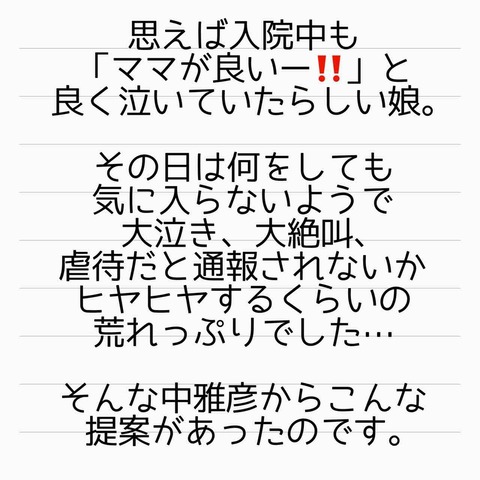 思えば入院中も
「ママが良いー‼️」と
良く泣いていたらしい娘。
その日は何をしても
気に入らないようで
大泣き、大絶叫、
虐待だと通報されないか
ヒヤヒヤするくらいの
荒れっぷりでした…
そんな中雅彦からこんな
提案があったのです。